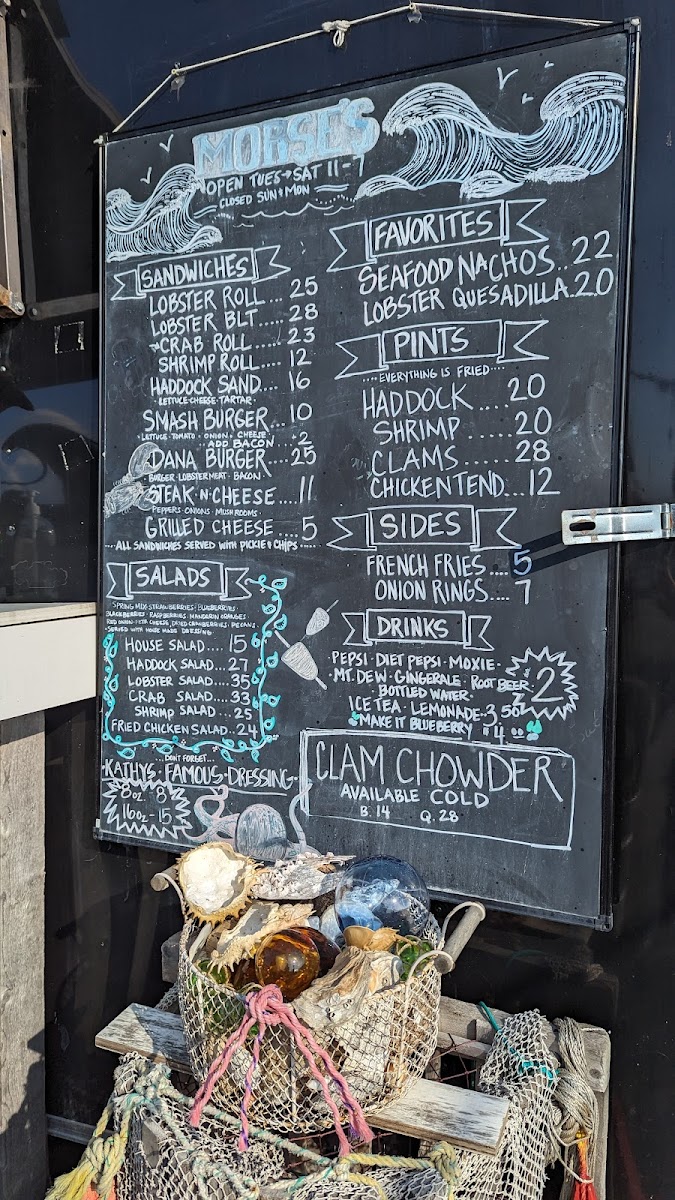 MORSE'S
OPEN TUES→SAT 11-7
CLOSED SUN & MON
SANDWICHES
LOBSTER ROLL... 25
LOBSTER BLT..... 28
CRAB ROLL.... 23
SHRIMP ROLL.... 12
HADDOCK SAND.... 16
LETTUCE·CHEESE·TARTAR
SMASH BURGER...10
LETTUCE·TOMATO·ONION·CHEESE
ADD BACON +2
DANA BURGER.....25
BURGER·LOBSTER MEAT·BACON
STEAK·N·CHEESE....11
PEPPERS·ONIONS·MUSHROOMS
GRILLED CHEESE....5
...ALL SANDWICHES SERVED WITH PICKLE & CHIPS....
SALADS
SPRING MIX·STRAWBERRIES·BLUEBERRIES
BLACKBERRIES·RASPBERRIES·MANDARIN ORANGES·
RED ONION·FETA CHEESE, DRIED CRANBERRIES, PECANS
·SERVED WITH HOUSE MADE DRESSING
HOUSE SALAD.... 15
HADDOCK SALAD... 27
LOBSTER SALAD....35
CRAB SALAD....33
SHRIMP SALAD.... 25
FRIED CHICKEN SALAD..24
...DON'T FORGET...
-KATHY'S·FAMOUS·DRESSING-
8oz. 8
16oz- 15
FAVORITES
SEAFOOD NACHOS..22
LOBSTER QUESADILLA.20
PINTS
....EVERYTHING IS FRIED....
HADDOCK....20
SHRIMP......20
CLAMS......28
CHICKEN TEND...12
SIDES
FRENCH FRIES....5
ONION RINGS....7
DRINKS
PEPSI·DIET PEPSI·MOXIE·
·MT. DEW·GINGERALE·ROOT BEER 2
BOTTLED WATER·
ICE TEA·LEMONADE-3.50
MAKE IT BLUEBERRY $4.00
CLAM CHOWDER
AVAILABLE COLD
B. 14 Q. 28